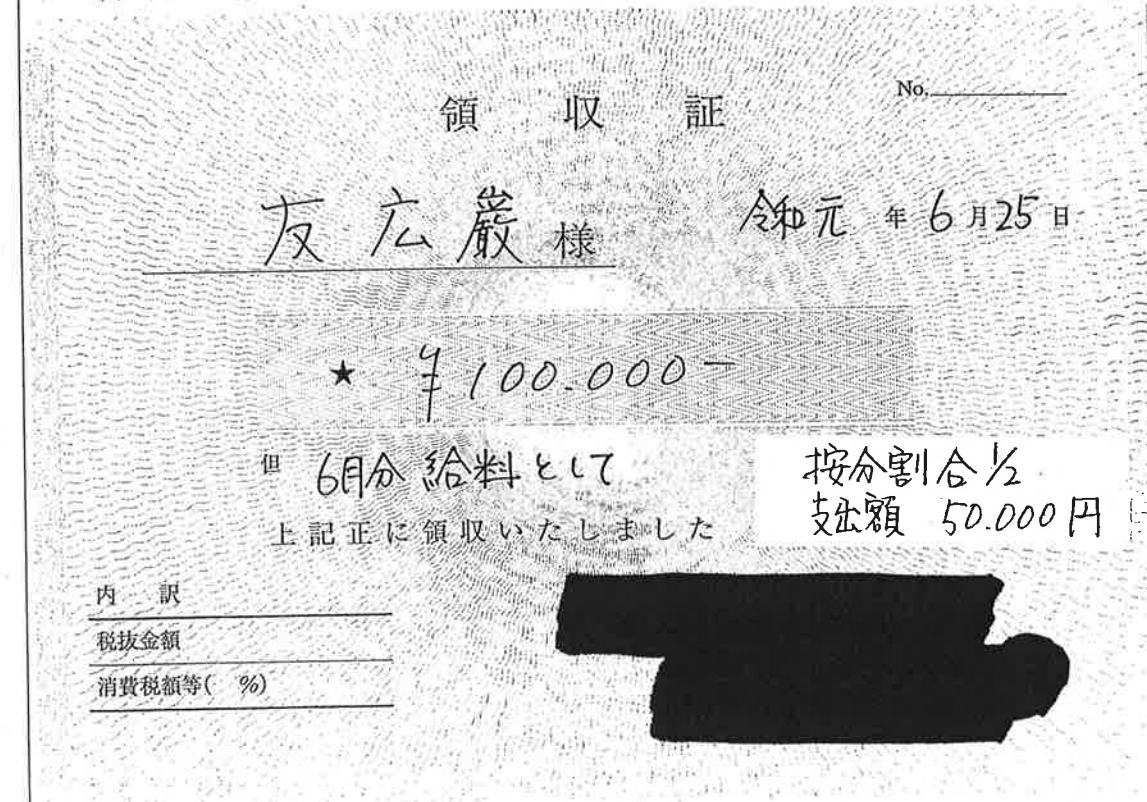 No.
領収証
友広巌様 令和元年6月25日
★ ¥100.000-
但 6月分給料として
上記正に領収いたしました
按分割合1/2
支出額 50.000円
内訳
税抜金額
消費税額等( %)